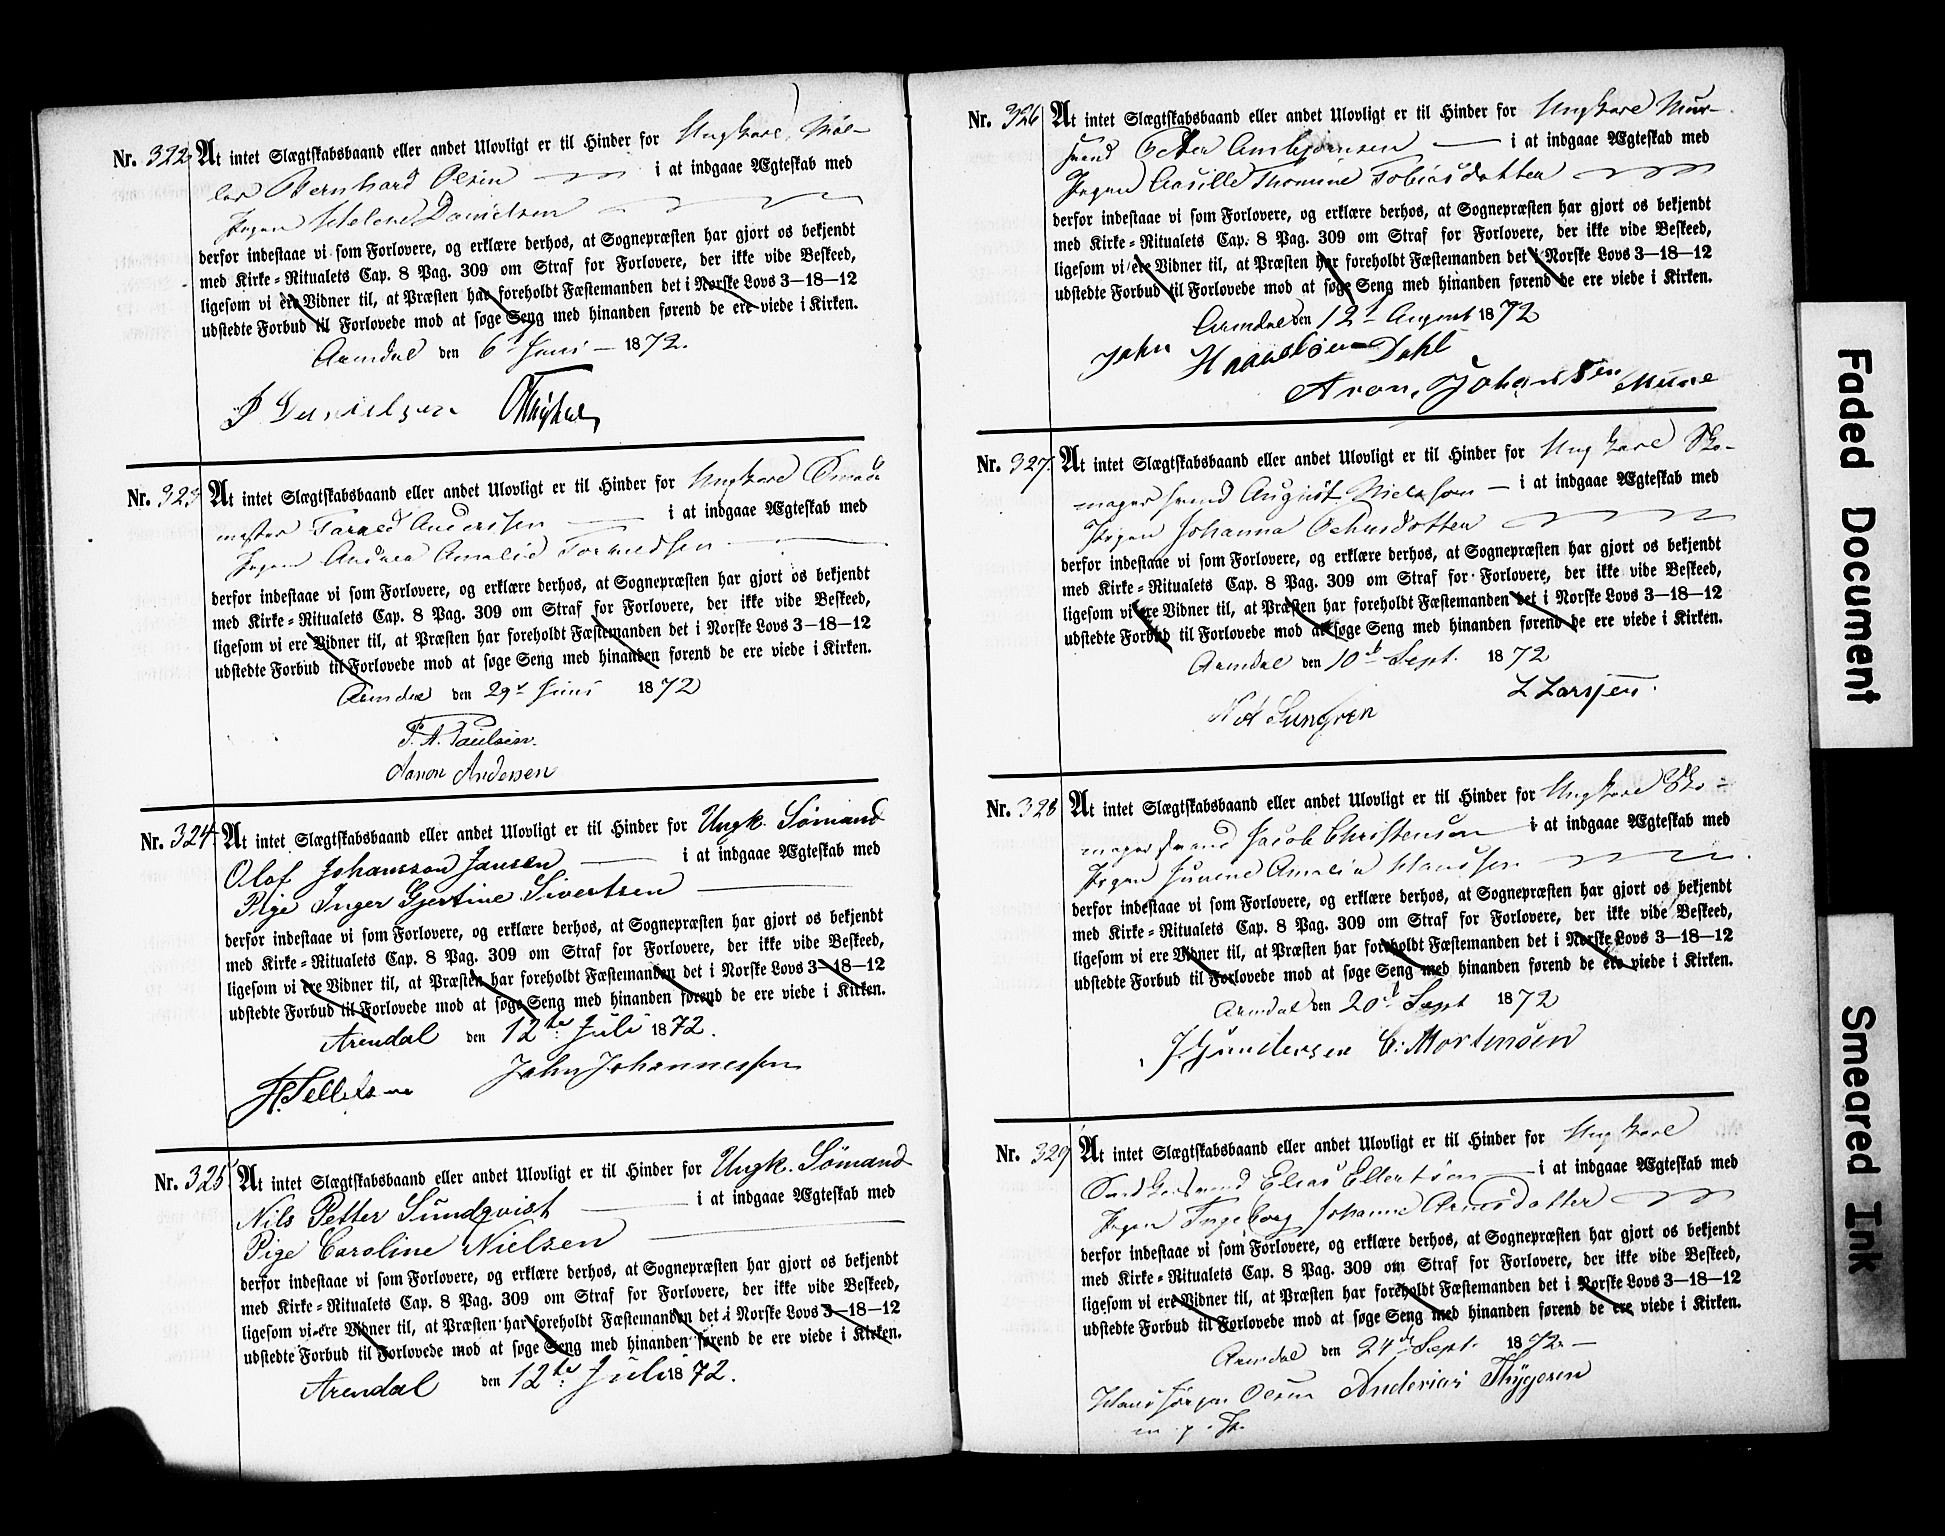 Nr. 322. At intet Slægtskabsbaand eller andet Ulovligt er til Hinder for Ungkarl Møl-
ler Bernhard Olsen i at indgaae Ægteskab med
Pigen Helene Danielsen
derfor indestaae vi som Forlovere, og erklære derhos, at Sognepræsten har gjort os bekjendt
med Kirke-Ritualets Cap. 8 Pag. 309 om Straf for Forlovere, der ikke vide Beskeed,
ligesom vi ere Vidner til, at Præsten har foreholdt Fæstemanden det i Norske Lovs 3-18-12
udstedte Forbud til Forlovede mod at søge Seng med hinanden førend de ere viede i Kirken.
Arendal den 6 Juni 1872.
P Danielsen
Nr. 323 At intet Slægtskabsbaand eller andet Ulovligt er til Hinder for Ungkarl
Andersen i at indgaae Ægteskab med
Pigen Andrea Amalie
derfor indestaae vi som Forlovere, og erklære derhos, at Sognepræsten har gjort os bekjendt
med Kirke-Ritualets Cap. 8 Pag. 309 om Straf for Forlovere, der ikke vide Beskeed,
ligesom vi ere Vidner til, at Præsten har foreholdt Fæstemanden det i Norske Lovs 3-18-12
udstedte Forbud til Forlovede mod at søge Seng med hinanden førend de ere viede i Kirken.
Arendal den 29 Juni 1872
P. A. Paulsen.
Aanon Andersen
Nr. 324. At intet Slægtskabsbaand eller andet Ulovligt er til Hinder for Ungk. Sømand
Olof Johansson Jansen i at indgaae Ægteskab med
Pige Inger Gjertine Sivertsen
derfor indestaae vi som Forlovere, og erklære derhos, at Sognepræsten har gjort os bekjendt
med Kirke-Ritualets Cap. 8 Pag. 309 om Straf for Forlovere, der ikke vide Beskeed,
ligesom vi ere Vidner til, at Præsten har foreholdt Fæstemanden det i Norske Lovs 3-18-12
udstedte Forbud til Forlovede mod at søge Seng med hinanden førend de ere viede i Kirken.
Arendal den 12te Juli 1872.
John Johannessen
Nr. 325 At intet Slægtskabsbaand eller andet Ulovligt er til Hinder for Ungk. Sømand
Nils Petter Sundqvist i at indgaae Ægteskab med
Pige Caroline Nielsen
derfor indestaae vi som Forlovere, og erklære derhos, at Sognepræsten har gjort os bekjendt
med Kirke-Ritualets Cap. 8 Pag. 309 om Straf for Forlovere, der ikke vide Beskeed,
ligesom vi ere Vidner til, at Præsten har foreholdt Fæstemanden det i Norske Lovs 3-18-12
udstedte Forbud til Forlovede mod at søge Seng med hinanden førend de ere viede i Kirken.
Arendal den 12te Juli 1872.
Nr. 326 At intet Slægtskabsbaand eller andet Ulovligt er til Hinder for Ungkarl Mur-
svend Peter Ambjørnsen i at indgaae Ægteskab med
Pigen Thomine Tobiasdatter
derfor indestaae vi som Forlovere, og erklære derhos, at Sognepræsten har gjort os bekjendt
med Kirke-Ritualets Cap. 8 Pag. 309 om Straf for Forlovere, der ikke vide Beskeed,
ligesom vi ere Vidner til, at Præsten har foreholdt Fæstemanden det i Norske Lovs 3-18-12
udstedte Forbud til Forlovede mod at søge Seng med hinanden førend de ere viede i Kirken.
Arendal den 12 August 1872
John Dahl
Aron Johansen
Nr. 327. At intet Slægtskabsbaand eller andet Ulovligt er til Hinder for Ungkarl Sko-
magersvend August Nielsson i at indgaae Ægteskab med
Pigen Johanna
derfor indestaae vi som Forlovere, og erklære derhos, at Sognepræsten har gjort os bekjendt
med Kirke-Ritualets Cap. 8 Pag. 309 om Straf for Forlovere, der ikke vide Beskeed,
ligesom vi ere Vidner til, at Præsten har foreholdt Fæstemanden det i Norske Lovs 3-18-12
udstedte Forbud til Forlovede mod at søge Seng med hinanden førend de ere viede i Kirken.
Arendal den 10 Sept. 1872
L Larssen.
Nr. 328 At intet Slægtskabsbaand eller andet Ulovligt er til Hinder for Ungkarl Sko-
magersvend Jacob Christensen i at indgaae Ægteskab med
Pigen Amalia Hanssen
derfor indestaae vi som Forlovere, og erklære derhos, at Sognepræsten har gjort os bekjendt
med Kirke-Ritualets Cap. 8 Pag. 309 om Straf for Forlovere, der ikke vide Beskeed,
ligesom vi ere Vidner til, at Præsten har foreholdt Fæstemanden det i Norske Lovs 3-18-12
udstedte Forbud til Forlovede mod at søge Seng med hinanden førend de ere viede i Kirken.
Arendal den 20 Sept 1872
J Gundersen C: Mortensen
Nr. 329 At intet Slægtskabsbaand eller andet Ulovligt er til Hinder for Ungkarl
Snedkersvend Elias Ellertsen i at indgaae Ægteskab med
Pigen Ingeborg Johanne Arnesdatter
derfor indestaae vi som Forlovere, og erklære derhos, at Sognepræsten har gjort os bekjendt
med Kirke-Ritualets Cap. 8 Pag. 309 om Straf for Forlovere, der ikke vide Beskeed,
ligesom vi ere Vidner til, at Præsten har foreholdt Fæstemanden det i Norske Lovs 3-18-12
udstedte Forbud til Forlovede mod at søge Seng med hinanden førend de ere viede i Kirken.
Arendal den 24 Sept. 1872
Hans Jørgen Olsen Anderias Thygesen
m. p. P.
Faded Document
Smeared Ink